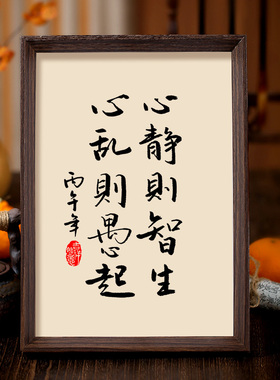 心静則智生
心乱則愚起
丙午年